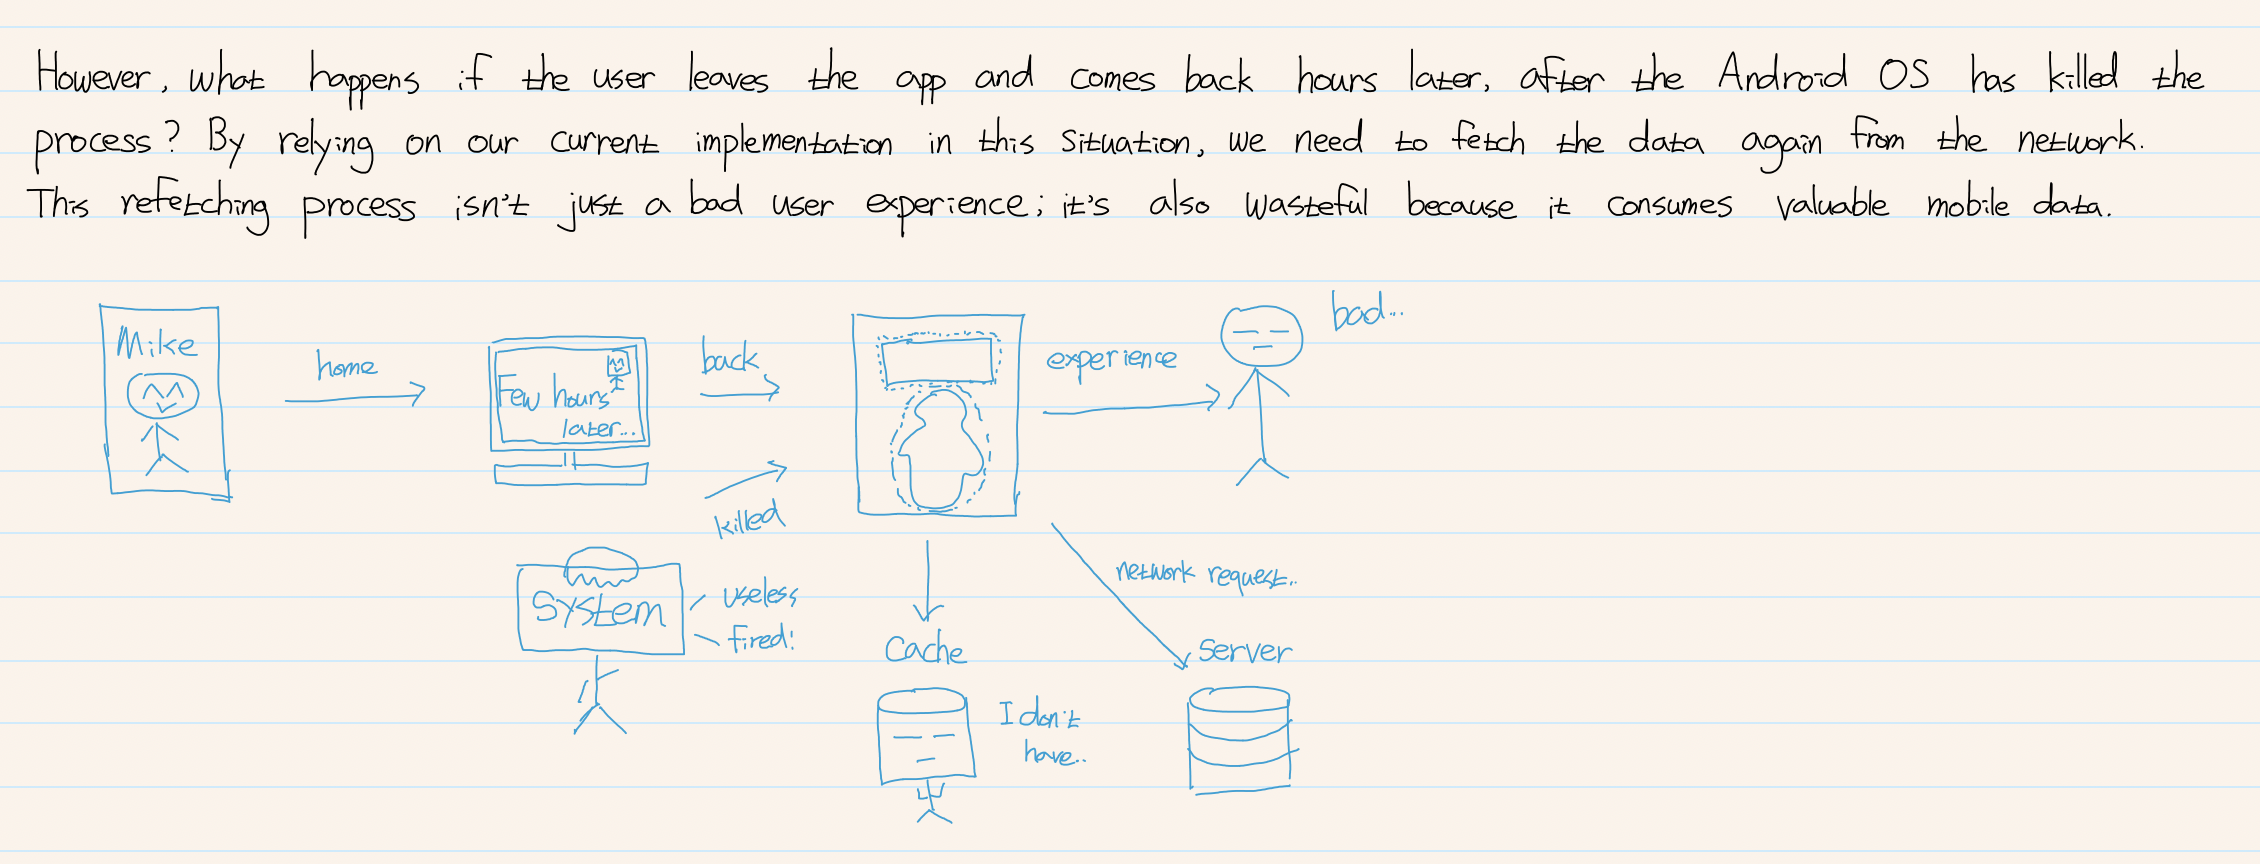 However, what happens if the user leaves the app and comes back hours later, after the Android OS has killed the
process? By relying on our current implementation in this situation, we need to fetch the data again from the network.
This refetching process isn't just a bad user experience; it's also wasteful because it consumes valuable mobile data.
Mike
home
Few hours
later...
back
killed
experience
bad...
System
useless
fired!
network request..
Cache
I don't
have..
Server